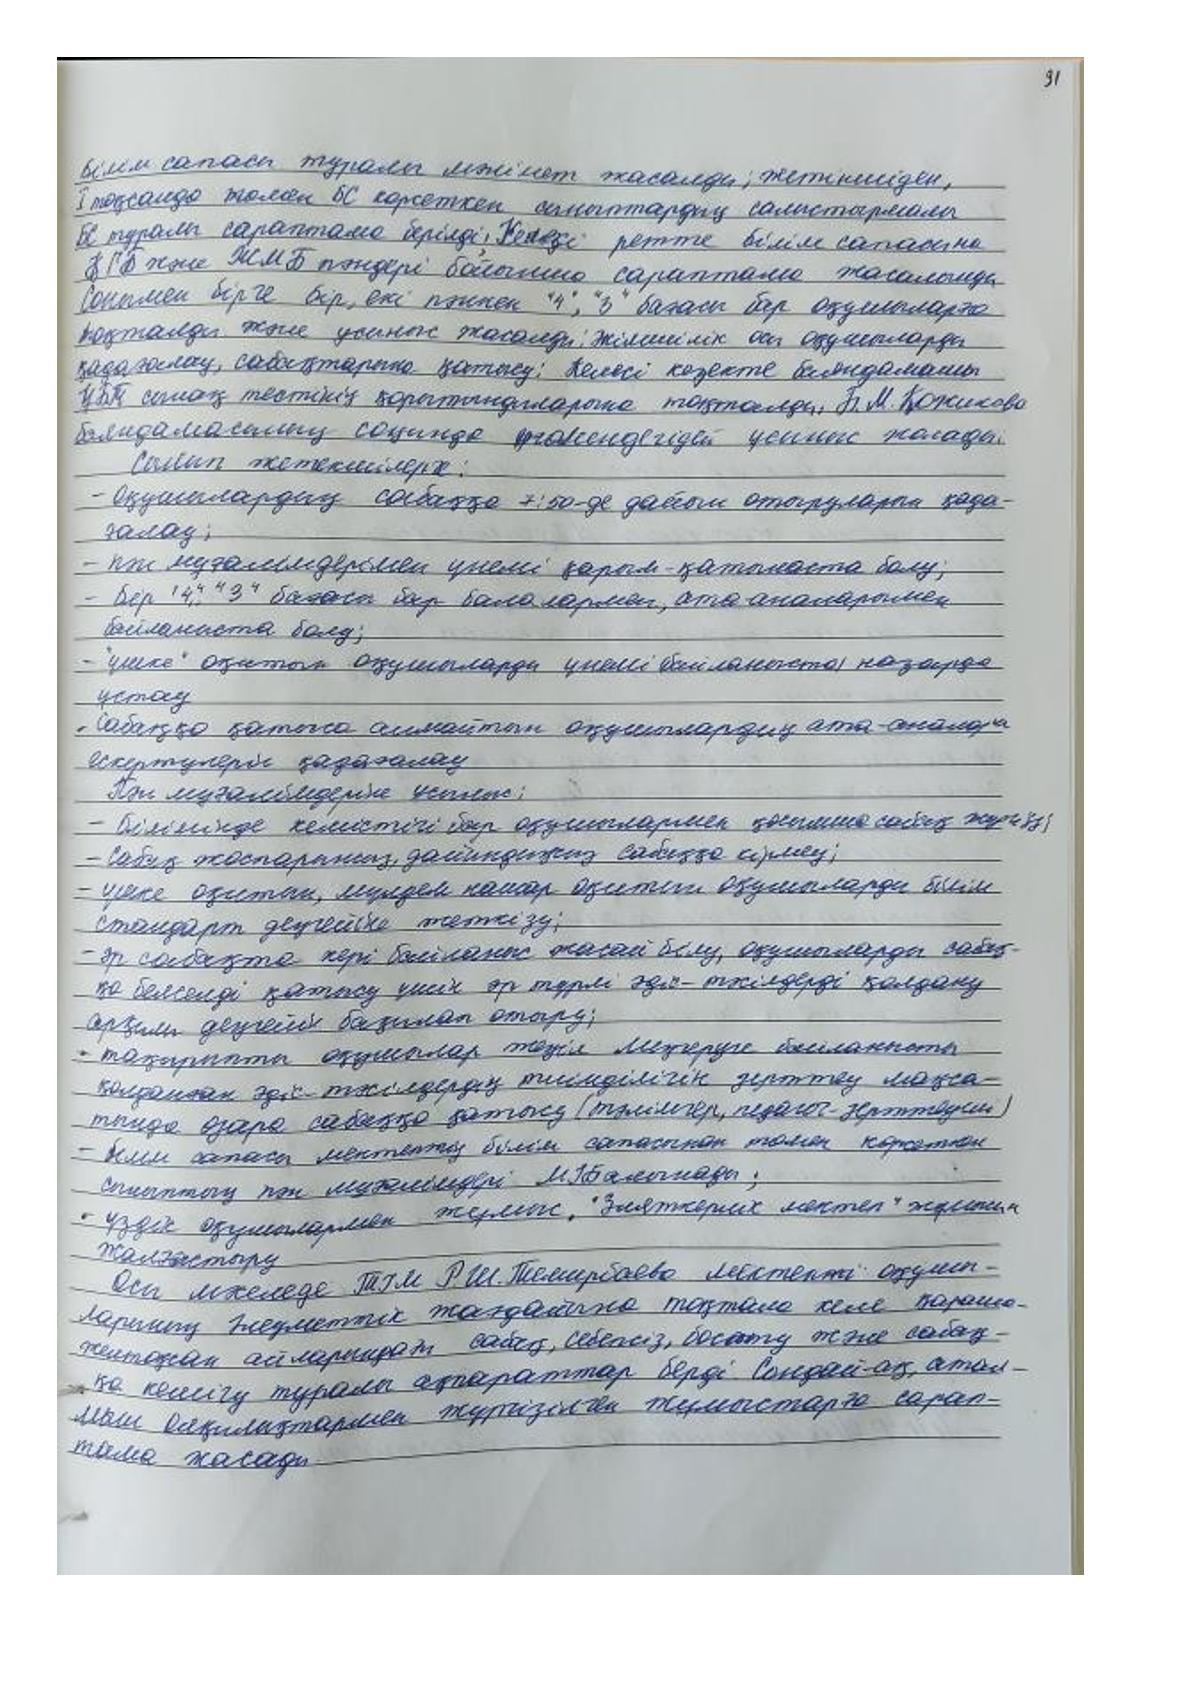 91
Білім сапасы туралы мәлімет жасалды; жетіншіден,
І тоқсанда төмен БС көрсеткен сыныптардың салыстырмалы
БС туралы сараптама берілді; Келесі ретте білім сапасына
ҚГБ және ЖМБ пәндері бойынша сараптама жасалынды
Сонымен бірге бір, екі пәннен "4", "3" бағасы бар оқушыларға
тоқталды және ұсыныс жасалды: әкімшілік осы оқушыларды
қадағалау, сабақтарына қатысу; Келесі кезекте баяндамашы
ҰБТ сынақ тестінің қорытындыларына тоқталды, М. Қожикова
баяндамасының соңында төмендегідей ұсыныс жасады:
Сынып жетекшілерге:
- Оқушылардың сабаққа 7:50-де дайын отыруларын қада-
ғалау;
- пән мұғалімдерімен үнемі қарым-қатынаста болу;
- бер "4", "3" бағасы бар балалармен, ата-аналарымен
байланыста болу;
- "үшке" оқитын оқушыларды үнемі байланыста назарда
ұстау
- Сабаққа қатыса алмайтын оқушылардың ата-анадан
ескертулерін қадағалау
Пән мұғалімдеріне ұсыныс:
- білімінде кемістігі бар оқушылармен қосымша сабақ жүргізу;
- Сабақ жоспарынсыз, дайындықсыз сабаққа кірмеу;
- үшке оқитын, мүлдем нашар оқитын оқушыларды білім
стандарт деңгейіне жеткізу;
- әр сабақта кері байланыс жасай білу, оқушыларды сабақ-
қа белсенді қатысу үшін әр түрлі әдіс-тәсілдерді қолдану
арқылы деңгейін бақылап отыру;
- тақырыпты оқушылар жеңіл меңгеруге байланысты
қолданған әдіс-тәсілдердің тиімділігін зерттеу мақса-
тында өзара сабаққа қатысу (тәлімгер, педагог-зерттеуші)
- Білім сапасы мектептің білім сапасынан төмен көрсеткен
сыныптың пән мұғалімдері МІБ алынады;
- үздік оқушылармен жұмыс, "Зияткерлік мектеп" жұмысын
жалғастыру
Осы мәселеде ТІМ Р.Ш. Темирбаева мектептің оқушы-
ларының әлеуметтік жағдайына тоқтала келе қараша-
желтоқсан айларындағы сабақ, себепсіз, босату және сабақ-
қа кешігу туралы ақпараттар берді. Сондай-ақ, атал-
мыш олқылықтармен жүргізілген жұмыстарға сарап-
тама жасады